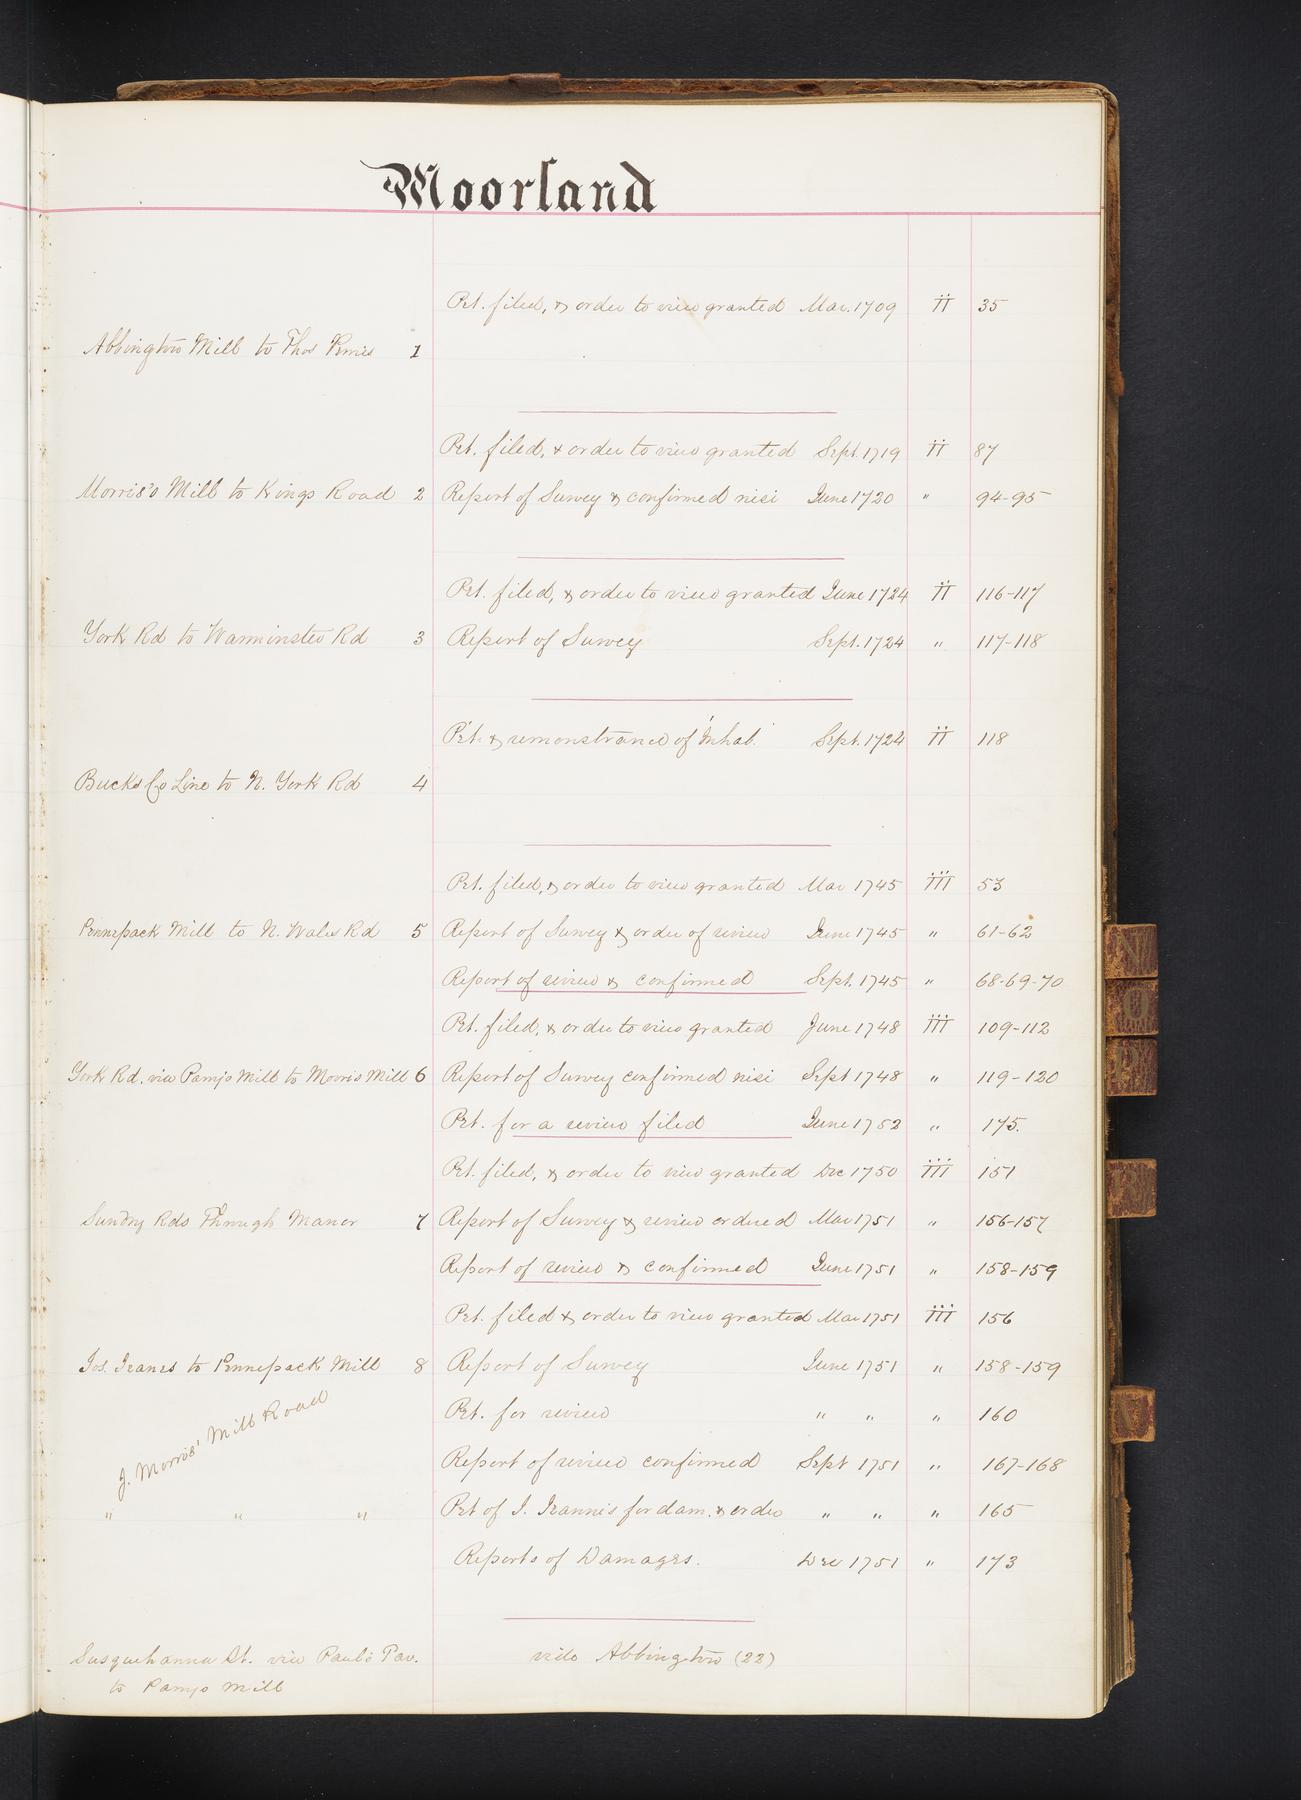 Moorland
Pet. filed, & order to view granted Mar. 1709 II 35
Abbington Mill to Thos 1
Pet. filed, & order to view granted Sept. 1719 II 87
Morris's Mill to Kings Road 2 Report of Survey & confirmed nisi June 1720 " 94-95
Pet. filed, & order to view granted June 1724 II 116-117
York Rd to Warminster Rd 3 Report of Survey Sept. 1724 " 117-118
Pet. & remonstrance of Inhab. Sept. 1724 II 118
Bucks Co Line to N. York Rd 4
Pet. filed, & order to view granted Mar 1745 III 53
Pennepack Mill to N. Wales Rd 5 Report of Survey & order of review June 1745 " 61-62
Report of review & confirmed Sept. 1745 " 68-69-70
Pet. filed, & order to view granted June 1748 III 109-112
York Rd. via Mill to Morris Mill 6 Report of Survey confirmed nisi Sept 1748 " 119-120
Pet. for a review filed June 1752 " 175.
Pet. filed, & order to view granted Dec 1750 III 151
Sundry Rds Through Manor 7 Report of Survey & review ordered Mar 1751 " 156-157
Report of review & confirmed June 1751 " 158-159
Pet. filed & order to view granted Mar 1751 III 156
Jos. to Pennepack Mill 8 Report of Survey June 1751 " 158-159
J. Morris' Mill Road
Pet. for review " " " 160
Report of review confirmed Sept 1751 " 167-168
" " " Pet of J. for dam. & order " " " 165
Reports of Damages. Dec 1751 " 173
Susquehanna St. via Paul's Tav. vide Abbington (22)
to Mill
N
O
P
R
V